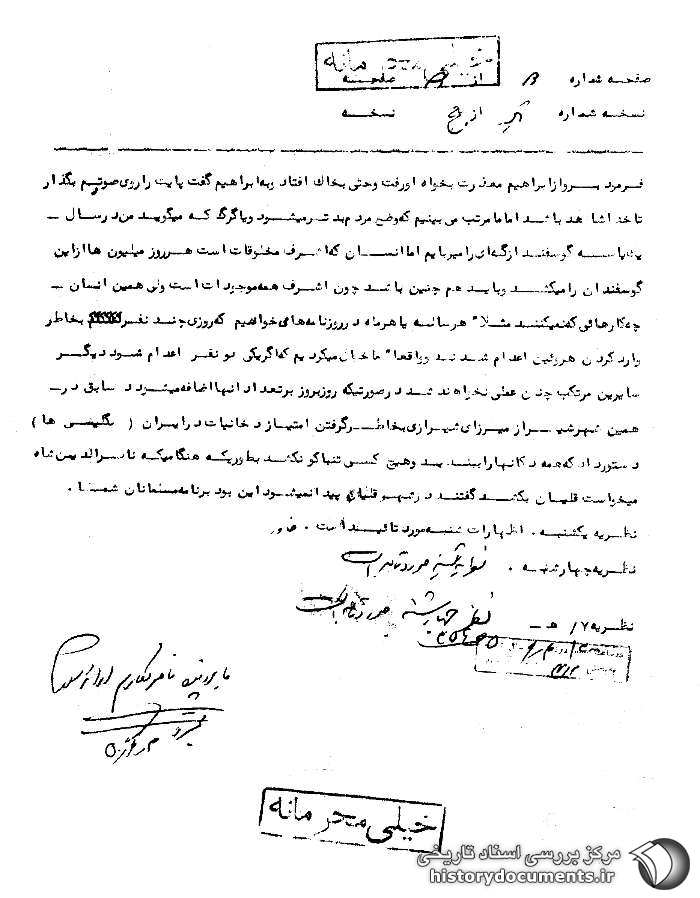 خیلی محرمانه
صفحه شماره از صفحه
نسخه شماره یک از پنج نسخه
فرمود برو از ابراهیم معذرت بخواه او رفت وحتی بخاك افتاد وبه ابراهیم گفت پایت را روی صورتم بگذار
تا خدا شاهد باشد اما ما مرتب می بینیم که وضع مردم بد تر میشود ویا گرگ که میگویند من در سال -
سه گوسفند از گله ای را میربایم اما انسان که اشرف مخلوقات است هر روز میلیون ها از این
گوسفندان را میکشد وباید هم چنین باشد چون اشرف همه موجودات است ولی همین انسان -
چه کارهائی که نمیکنند مثلا" هر ساله یا هر ماه در روزنامه ها می خواندیم که روزی چند نفر بخاطر
وارد کردن هروئین اعدام شدند وواقعا" ما خیال میکردیم که اگر یکی دو نفر اعدام شود دیگر
سایرین مرتکب چنان عملی نخواهند شد در صورتیکه روز بروز بر تعداد آنها اضافه میشود در سابق در -
همین شهر شیراز میرزای شیرازی بخاطر گرفتن امتیاز دخانیات در ایران ( انگلیسی ها )
دستور داد که همه دکانها را ببندید وهیچ کسی تنباکو نکشد بطوریکه هنگامیکه ناصرالدین شاه
میخواست قلیان بکشد گفتند در شهر قلیان پیدا نمیشود این بود برنامه مسلمانان شمسا .
نظریه یکشنبه . اظهارات شنبه مورد تائید است . خاور
نظریه چهارشنبه . نظریه یکشنبه مورد تائید است
نظریه ۷/ هـ - نظریه چهارشنبه مورد تائید است
خیلی محرمانه
مرکز بررسی اسناد تاریخی
historydocuments.ir